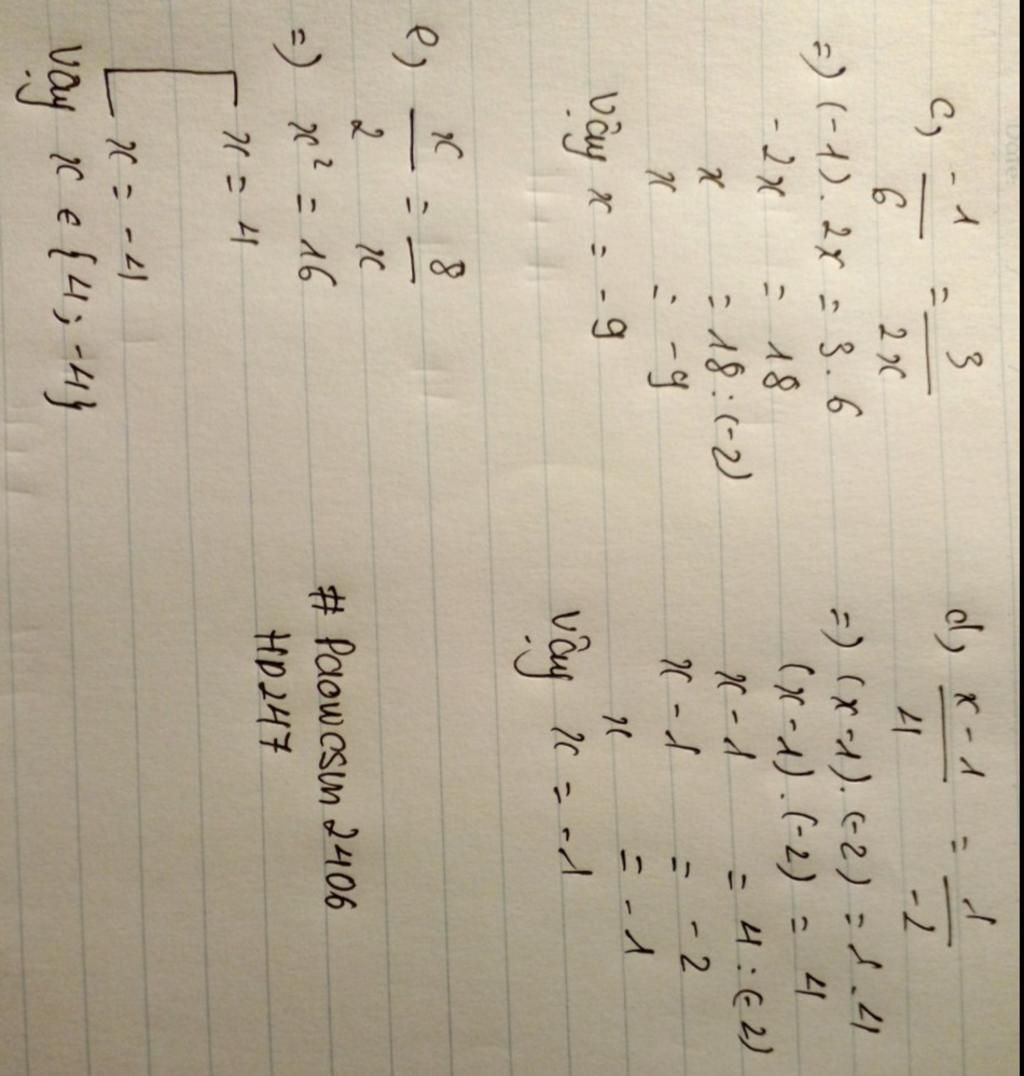 c, -1/6 = 3/2x
=) (-1). 2x = 3. 6
-2x = 18
x = 18: (-2)
x = -9
Vậy x = -9
d, x-1/4 = 1/-2
=) (x-1). (-2) = 1. 4
(x-1). (-2) = 4
x-1 = 4: (-2)
x-1 = -2
x = -1
Vậy x = -1
e, x/2 = 8/x
=) x² = 16
[ x = 4
x = -4
Vậy x ∈ {4; -4}
# Paowcsun 2406
HD247